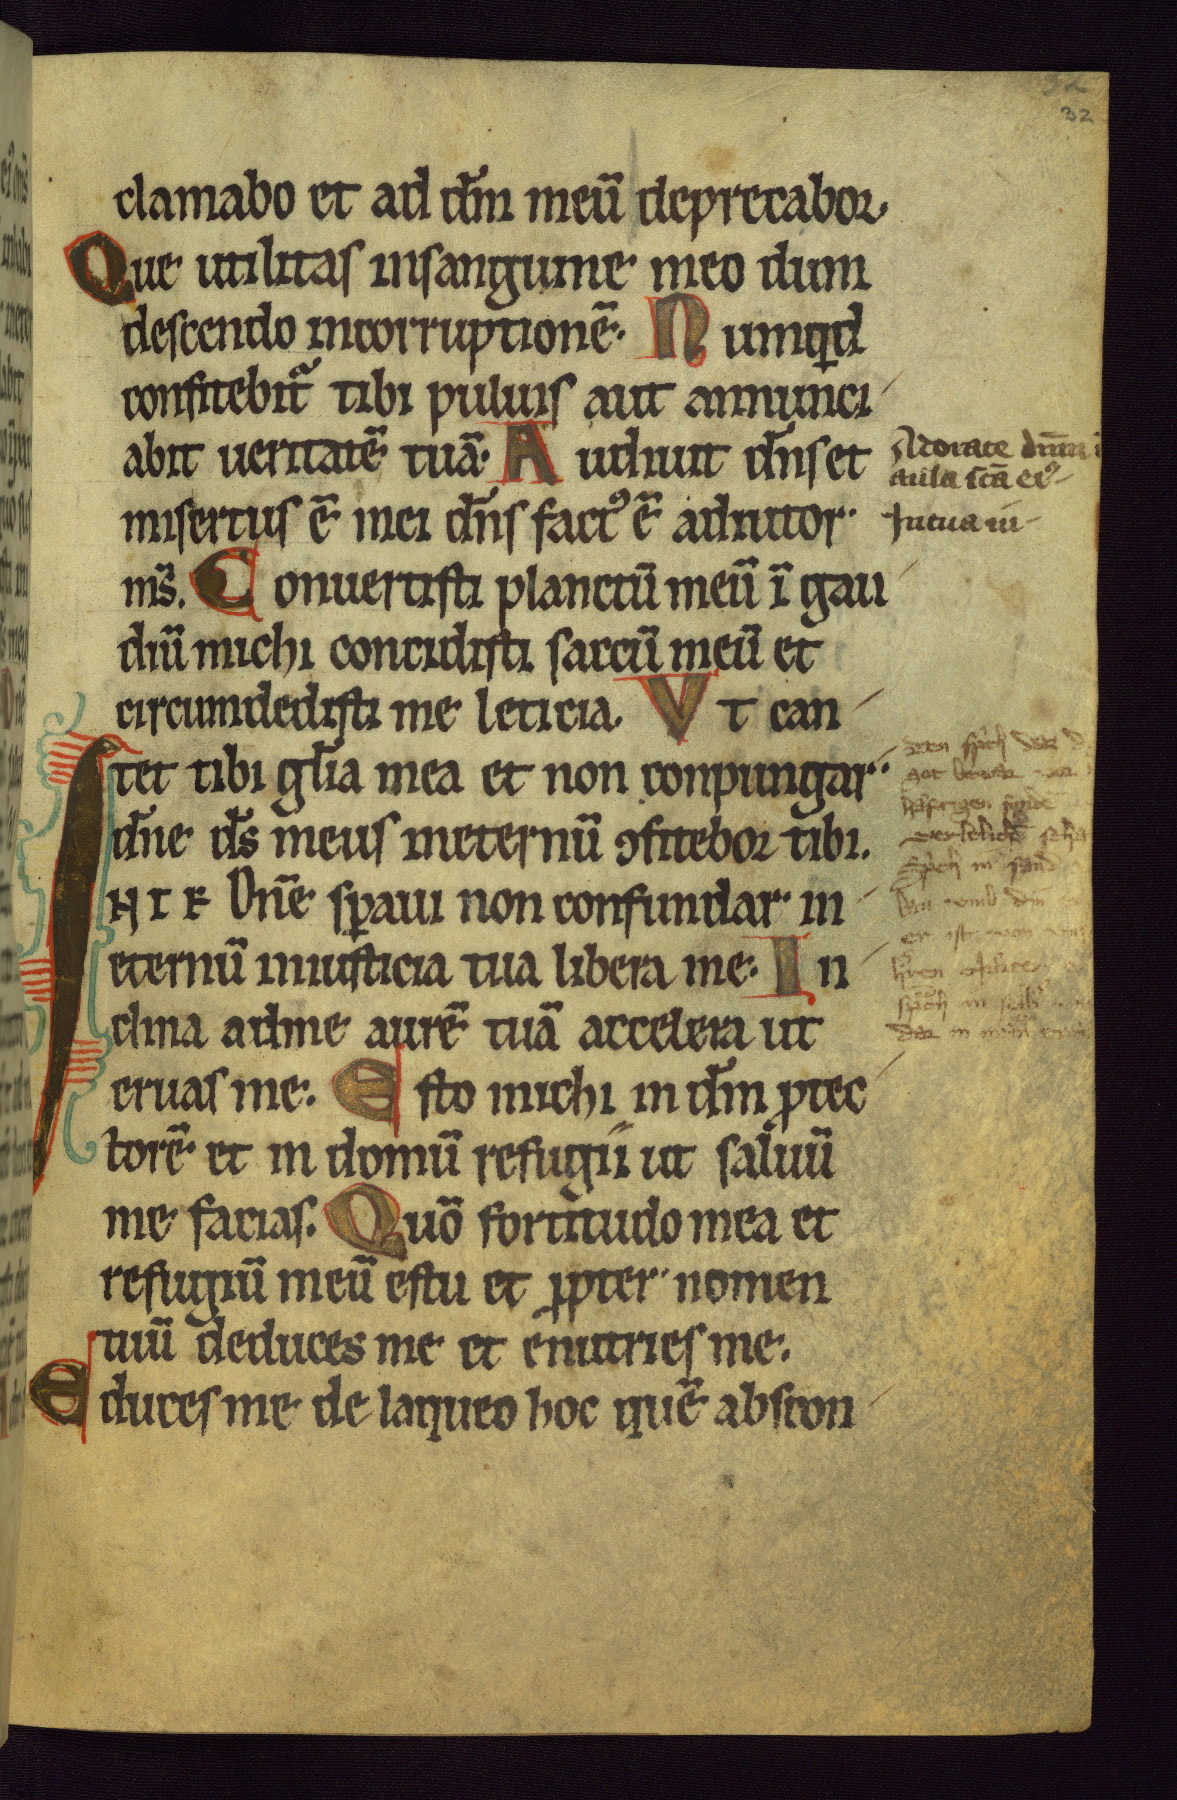 32
clamabo et ad dm̄ meū deprecabor.
Que utilitas insanguine meo dum
descendo incorruptionē. Numqid
confitebit᷑ tibi puluis aut annunci
abit ueritatē tuā. Audiuit dn̄s et
misertus ē mei dn̄s factꝰ ē adiutor
ms̄. Conuertisti planctū meū ī gau
diū michi concidisti saccū meū et
circumdedisti me leticia. Vt can
tet tibi gl̄ia mea et non conpungar.
dn̄e ds̄ meus ineternū ↄfitebor tibi.
INTE Dn̄e sꝑaui non confundar in
eternū iniusticia tua libera me. In
clina adme aurē tuā accelera ut
eruas me. Esto michi in dm̄ ꝓtec
torē et in domū refugii ut saluū
me facias. Quō fortitudo mea et
refugiū meū es tu et ꝓpter nomen
tuū deduces me et enutries me.
Educes me de laqueo hoc quē abscon
Adorate dn̄m ī
aula scā eiꝰ
In tua iu